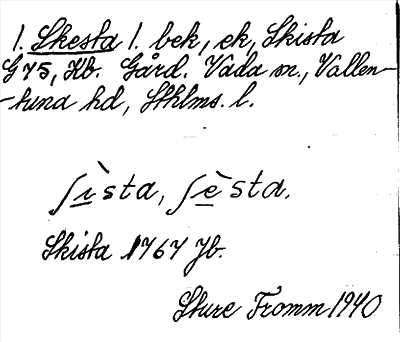 1. Skesta l. bek, ek, Skista
G 75, Kb. Gård. Vada sn., Vallen-
-tuna hd, Sthlms. l.
ʃı̀sta, ʃèsta.
Skista 1767 Jb.
Sture Fromm 1940